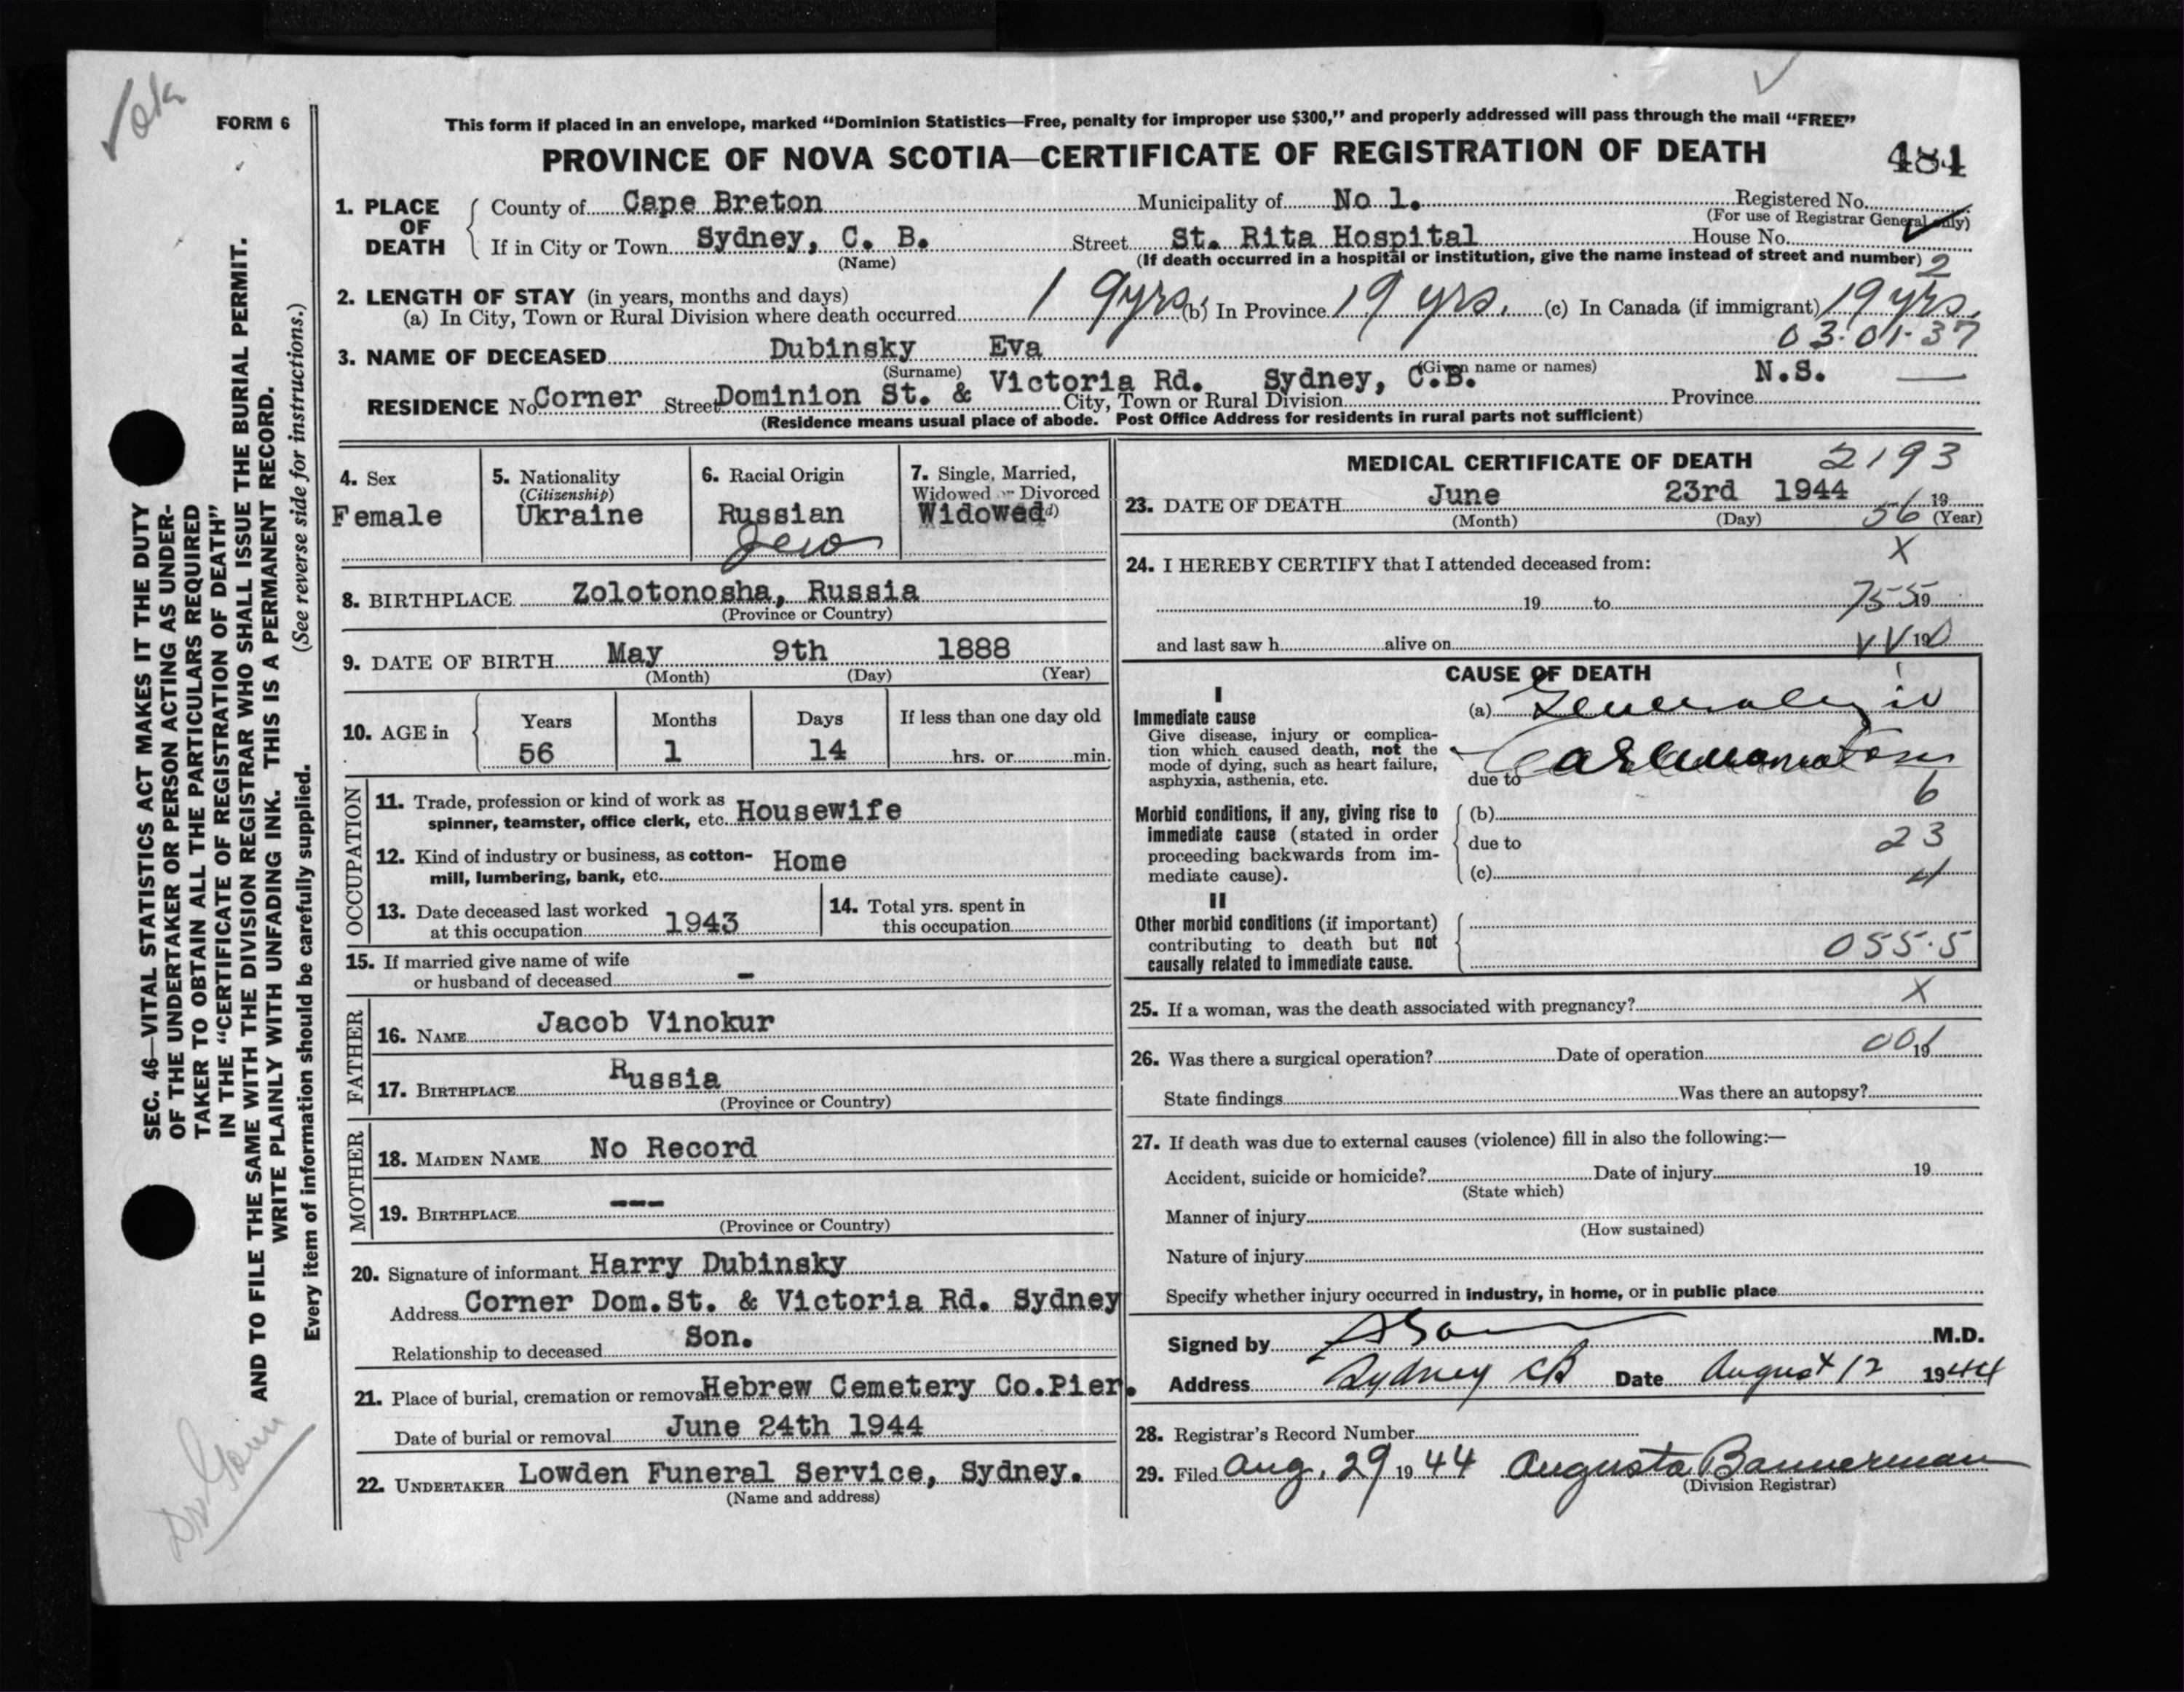 ✓ ok
FORM 6
This form if placed in an envelope, marked “Dominion Statistics—Free, penalty for improper use $300,” and properly addressed will pass through the mail “FREE”
PROVINCE OF NOVA SCOTIA—CERTIFICATE OF REGISTRATION OF DEATH
484
1. PLACE OF DEATH
County of Cape Breton Municipality of No 1. Registered No.
(For use of Registrar General only)
If in City or Town Sydney, C. B. Street St. Rita Hospital House No.
(Name) (If death occurred in a hospital or institution, give the name instead of street and number) 2
2. LENGTH OF STAY (in years, months and days)
(a) In City, Town or Rural Division where death occurred 19 yrs. (b) In Province 19 yrs. (c) In Canada (if immigrant) 19 yrs.
03.01.37
3. NAME OF DECEASED Dubinsky Eva
(Surname) (Given name or names)
RESIDENCE No. Corner Street Dominion St. & Victoria Rd. City, Town or Rural Division Sydney, C.B. Province N.S. —
(Residence means usual place of abode. Post Office Address for residents in rural parts not sufficient)
4. Sex
Female
5. Nationality
(Citizenship)
Ukraine
6. Racial Origin
Russian
Jew
7. Single, Married,
Widowed or Divorced
Widowed
8. BIRTHPLACE Zolotonosha, Russia
(Province or Country)
9. DATE OF BIRTH May 9th 1888
(Month) (Day) (Year)
10. AGE in
Years Months Days If less than one day old
56 1 14 hrs. or min.
OCCUPATION
11. Trade, profession or kind of work as
spinner, teamster, office clerk, etc. Housewife
12. Kind of industry or business, as cotton-
mill, lumbering, bank, etc. Home
13. Date deceased last worked
at this occupation 1943
14. Total yrs. spent in
this occupation
15. If married give name of wife
or husband of deceased -
FATHER
16. NAME Jacob Vinokur
17. BIRTHPLACE Russia
(Province or Country)
MOTHER
18. MAIDEN NAME No Record
19. BIRTHPLACE ---
(Province or Country)
20. Signature of informant Harry Dubinsky
Address Corner Dom.St. & Victoria Rd. Sydney
Relationship to deceased Son.
21. Place of burial, cremation or removal Hebrew Cemetery Co.Pier.
Date of burial or removal June 24th 1944
22. UNDERTAKER Lowden Funeral Service, Sydney.
(Name and address)
MEDICAL CERTIFICATE OF DEATH 2193
23. DATE OF DEATH June 23rd 1944 19
(Month) (Day) 56 (Year)
24. I HEREBY CERTIFY that I attended deceased from: X
19 to 755 19
and last saw h alive on 19
CAUSE OF DEATH
I
Immediate cause
Give disease, injury or complica-
tion which caused death, not the
mode of dying, such as heart failure,
asphyxia, asthenia, etc.
(a)
due to
Morbid conditions, if any, giving rise to
immediate cause (stated in order
proceeding backwards from im-
mediate cause).
(b) 6
due to 23
(c) 4
II
Other morbid conditions (if important)
contributing to death but not
causally related to immediate cause.
055.5
25. If a woman, was the death associated with pregnancy? X
26. Was there a surgical operation? Date of operation 001 19
State findings Was there an autopsy?
27. If death was due to external causes (violence) fill in also the following:—
Accident, suicide or homicide? Date of injury 19
(State which)
Manner of injury
(How sustained)
Nature of injury
Specify whether injury occurred in industry, in home, or in public place
Signed by M.D.
Address Sydney CB Date August 12 1944
28. Registrar's Record Number
29. Filed Aug. 29 1944 Augusta Bannerman
(Division Registrar)
SEC. 46—VITAL STATISTICS ACT MAKES IT THE DUTY
OF THE UNDERTAKER OR PERSON ACTING AS UNDER-
TAKER TO OBTAIN ALL THE PARTICULARS REQUIRED
IN THE “CERTIFICATE OF REGISTRATION OF DEATH”
AND TO FILE THE SAME WITH THE DIVISION REGISTRAR WHO SHALL ISSUE THE BURIAL PERMIT.
WRITE PLAINLY WITH UNFADING INK. THIS IS A PERMANENT RECORD.
Every item of information should be carefully supplied. (See reverse side for instructions.)